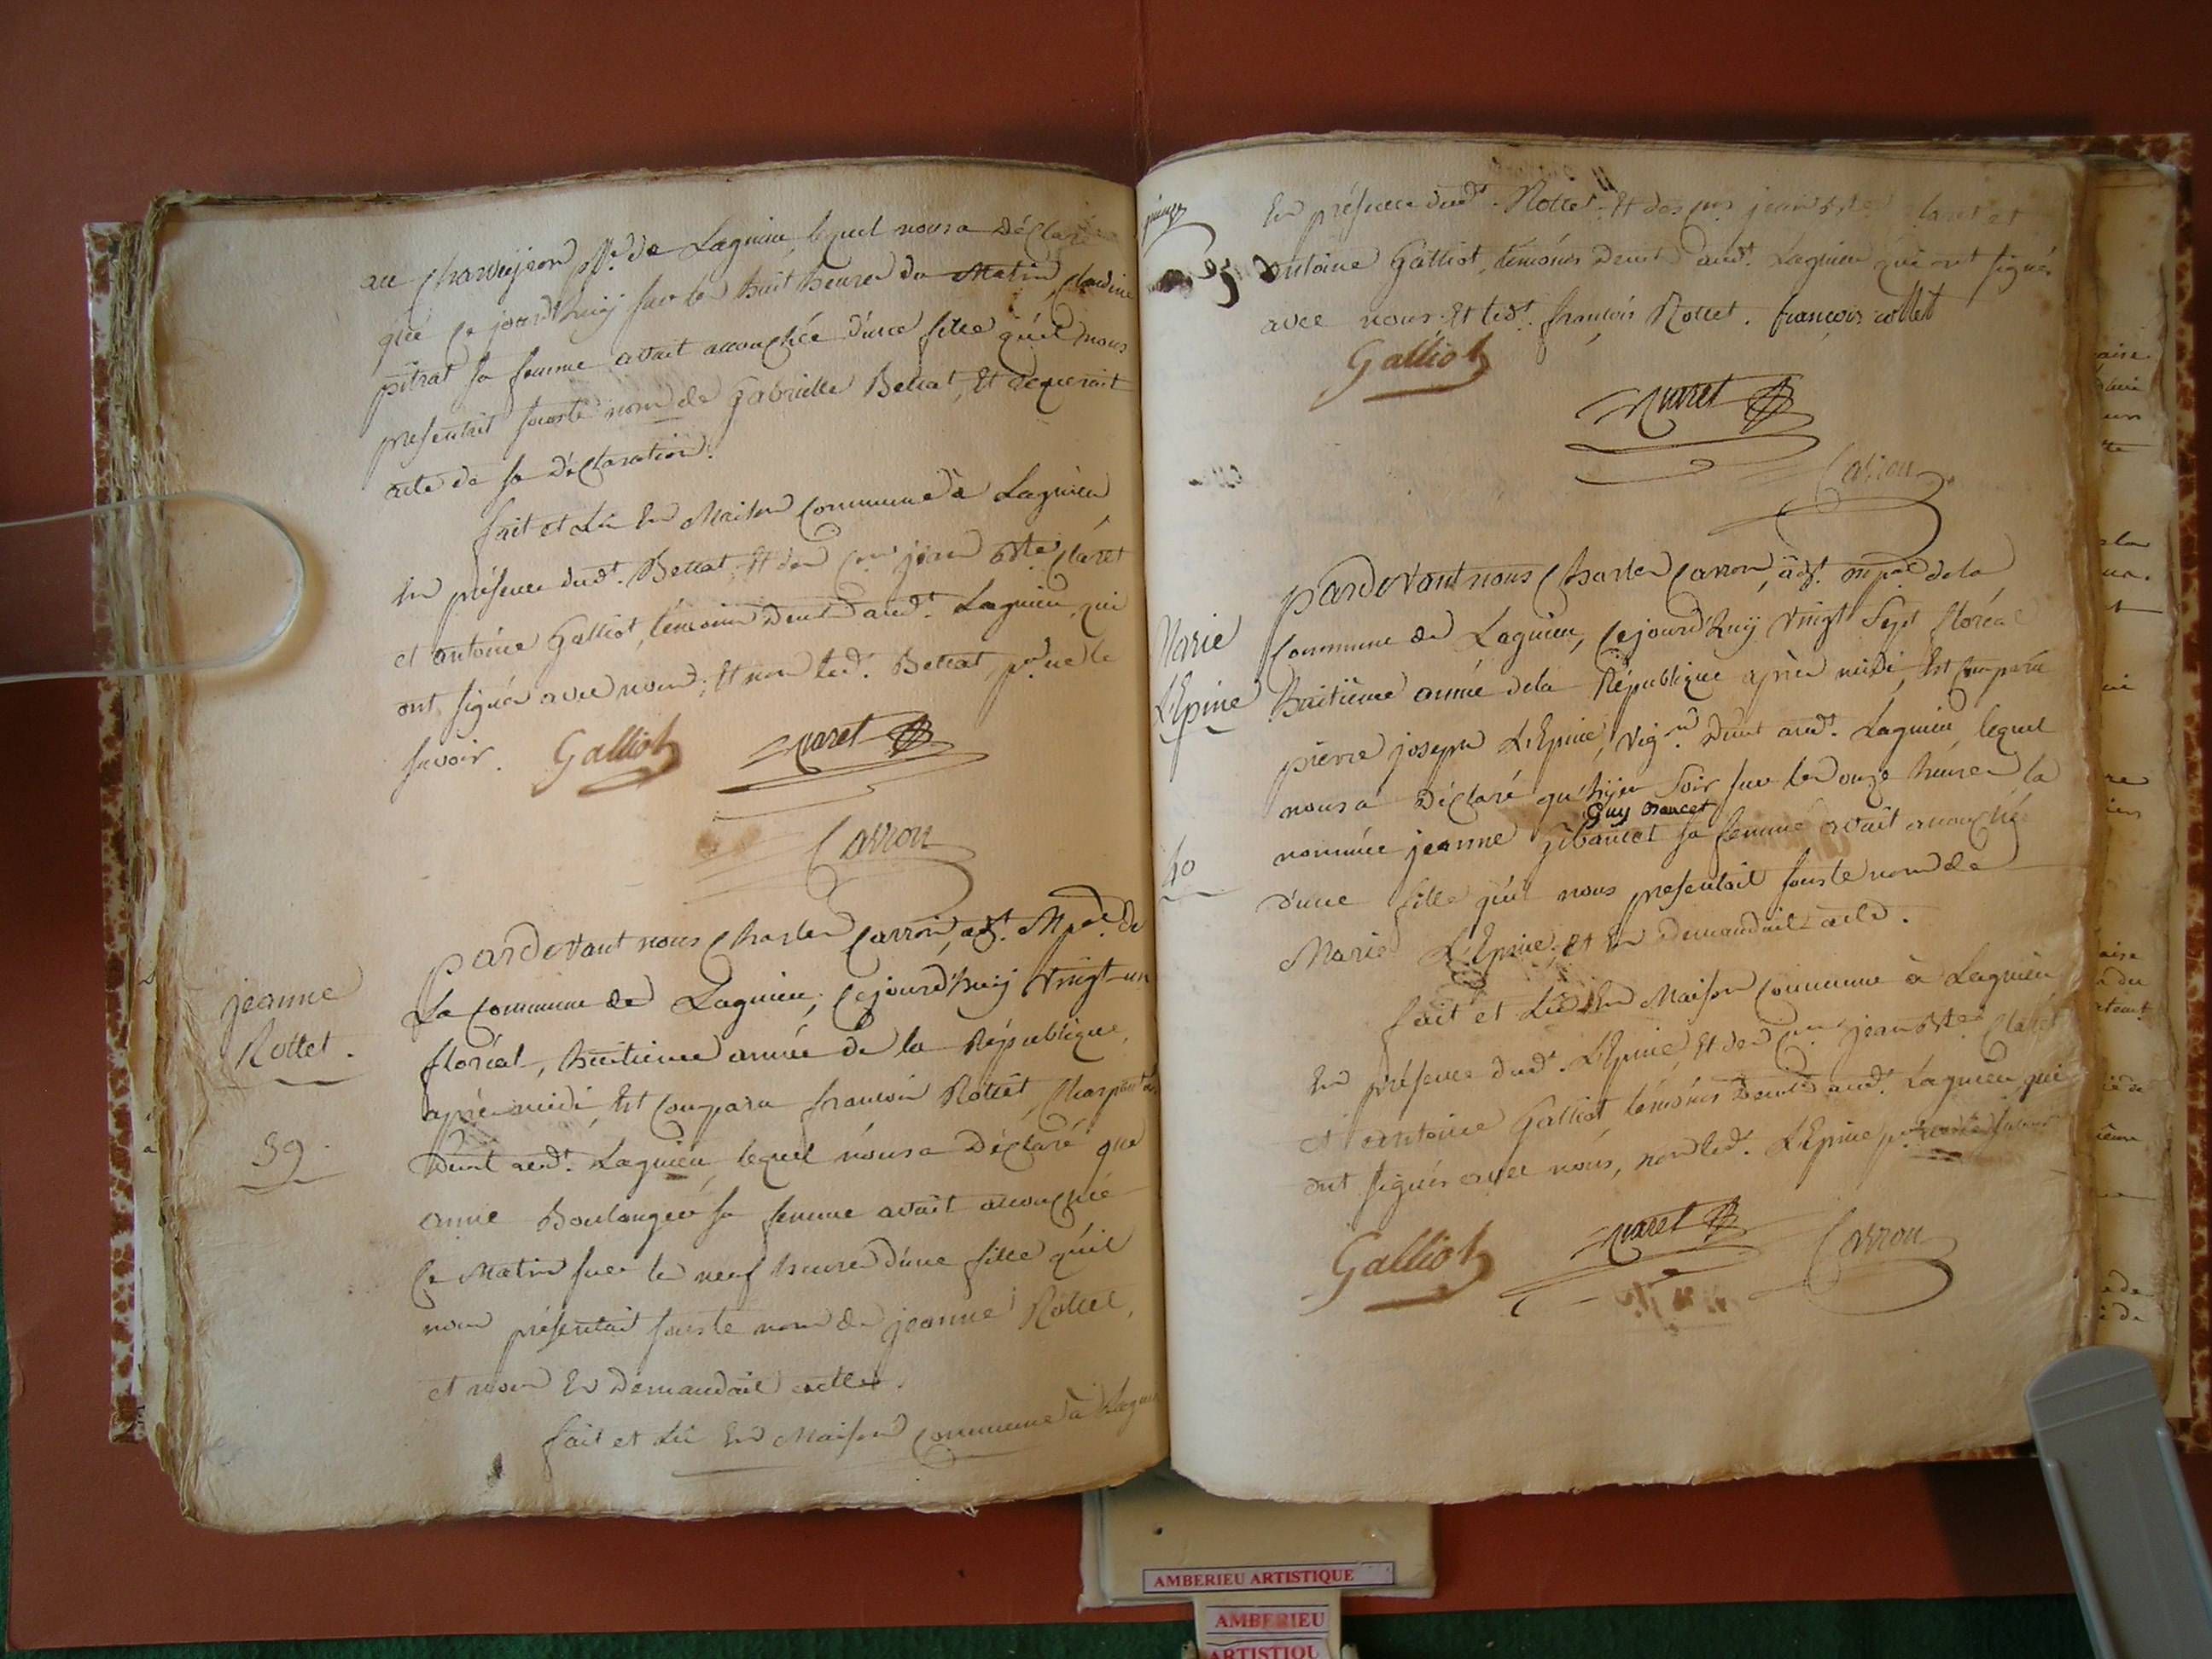 au Charveyron psse. de Lagnieu, lequel nous a Déclaré
que ce jourd'huy sur les huit heures du Matin, Claudine
pitrat sa femme avait accouchée d'une fille qu'il nous
presentait sous le nom de Gabrielle Bettat, Et requerait
acte de sa Déclaration.
fait et Lû En Maison Commune à Lagnieu
En présence dudt. Bettat, Et des Cens jean Bte. Claret
et antoine Galliot, témoins Deurt. audt. Lagnieu, qui
ont signés avec nous, Et non ledt. Bettat, pr. ne le
savoir. Galliot Claret
Carron
jeanne
Rottet.
39
Pardevant nous Charles Carron, adjt. Mpal. de
La Commune de Lagnieu, Cejourd'huy Vingt-un
floréal, huitieme année de la République,
après midi Est Comparu francois Rottet, Charpentier
Deurt. audt. Lagnieu, lequel nous a Déclaré que
anne Boulanger sa femme avait accouchée
Ce Matin sur les neuf heures d'une fille qu'il
nous présentait sous le nom de jeanne Rottet,
et nous En Demandait acte.
fait et Lû En Maison Commune à Lagnieu
En présence dudt. Rottet, Et des Cns jean Bte Claret et
antoine Galliot, témoins Deurt. audt. Lagnieu qui ont signés
avec nous Et ledt. francois Rottet. françois rottet
Galliot
Claret
Carron
Marie
L'Epine
40
Pardevant nous Charles Carron, adjt. mpal de la
Commune de Lagnieu, Cejourd'huy Vingt Sept floréal
huitieme année de la République après midi, Est Comparu
pierre joseph L'Epine, Vign. Deurt audt. Lagnieu, lequel
nous a Déclaré qu'hyer Soir sur les onze heures la
Guy
nommée jeanne sa femme avait accouchée
d'une fille qu'il nous presentait sous le nom de
Marie L'Epine, et En Demandait acte.
fait et Lû En Maison Commune à Lagnieu
En présence dudt. L'Epine, Et des Cens jean Bte Claret
et antoine Galliot, témoins Deurt. audt. Lagnieu, qui
ont signés avec nous, non ledt. L'Epine pr. ne le savoir
Galliot Claret Carron
AMBERIEU ARTISTIQUE
AMBERIEU
ARTISTIQU